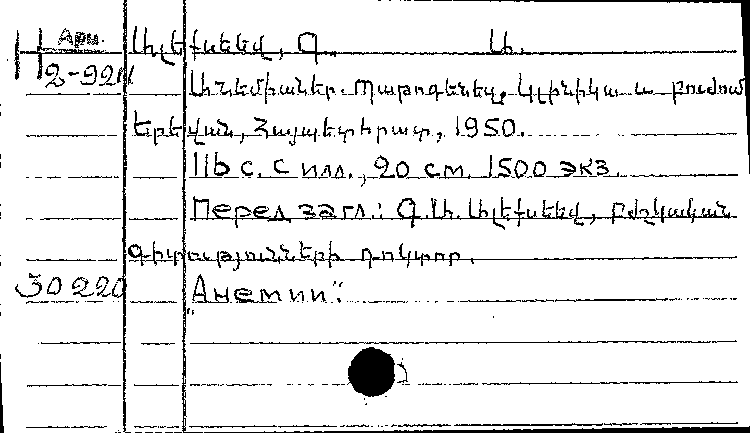 Арм.
2-921
Ալեքսեեվ, Գ. Ա.
Անեմիաներ. Պաթոգենեզ, կլինիկա և բուժում
Երեվան, Հայպետհրատ, 1950.
116 с. с илл., 20 см. 1500 экз.
Перед загл.: Գ. Ա. Ալեքսեեվ, բժշկական
գիտությունների դոկտոր.
30220
"Анемии".